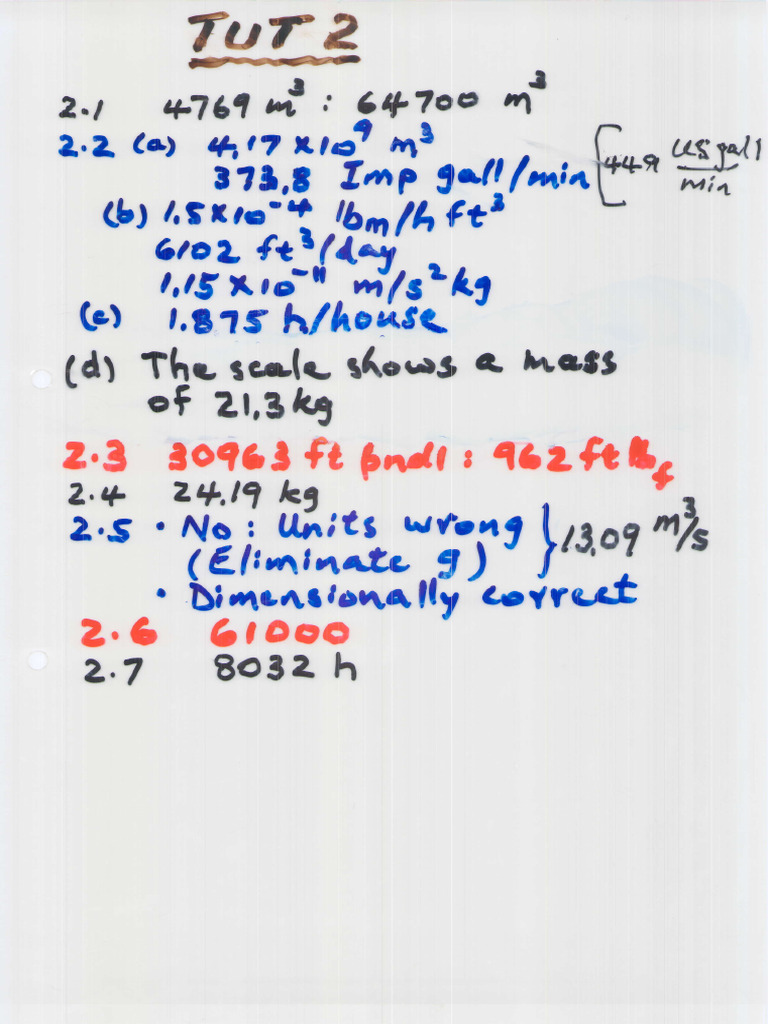 TUT 2
2.1 4769 m³ : 64700 m³
2.2 (a) 4.17 ×10⁹ m³
373.8 Imp gall/min [449 US gall/min
(b) 1.5×10⁻⁴ lbm/h ft³
6102 ft³/day
1.15 × 10⁻¹¹ m/s² kg
(c) 1.875 h/house
(d) The scale shows a mass
of 21.3 kg
2.3 30963 ft pndl : 962 ft lbf
2.4 24.19 kg
2.5 • No : Units wrong } 13.09 m³/s
(Eliminate g)
• Dimensionally correct
2.6 61000
2.7 8032 h